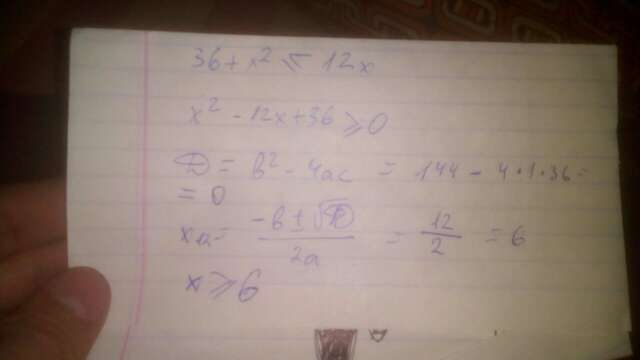 36 + x² ≤ 12x
x² - 12x + 36 ⩾ 0
D = b² - 4ac = 144 - 4·1·36 =
= 0
x₁₂ = (-b ± √D)/2a = 12/2 = 6
x ⩾ 6